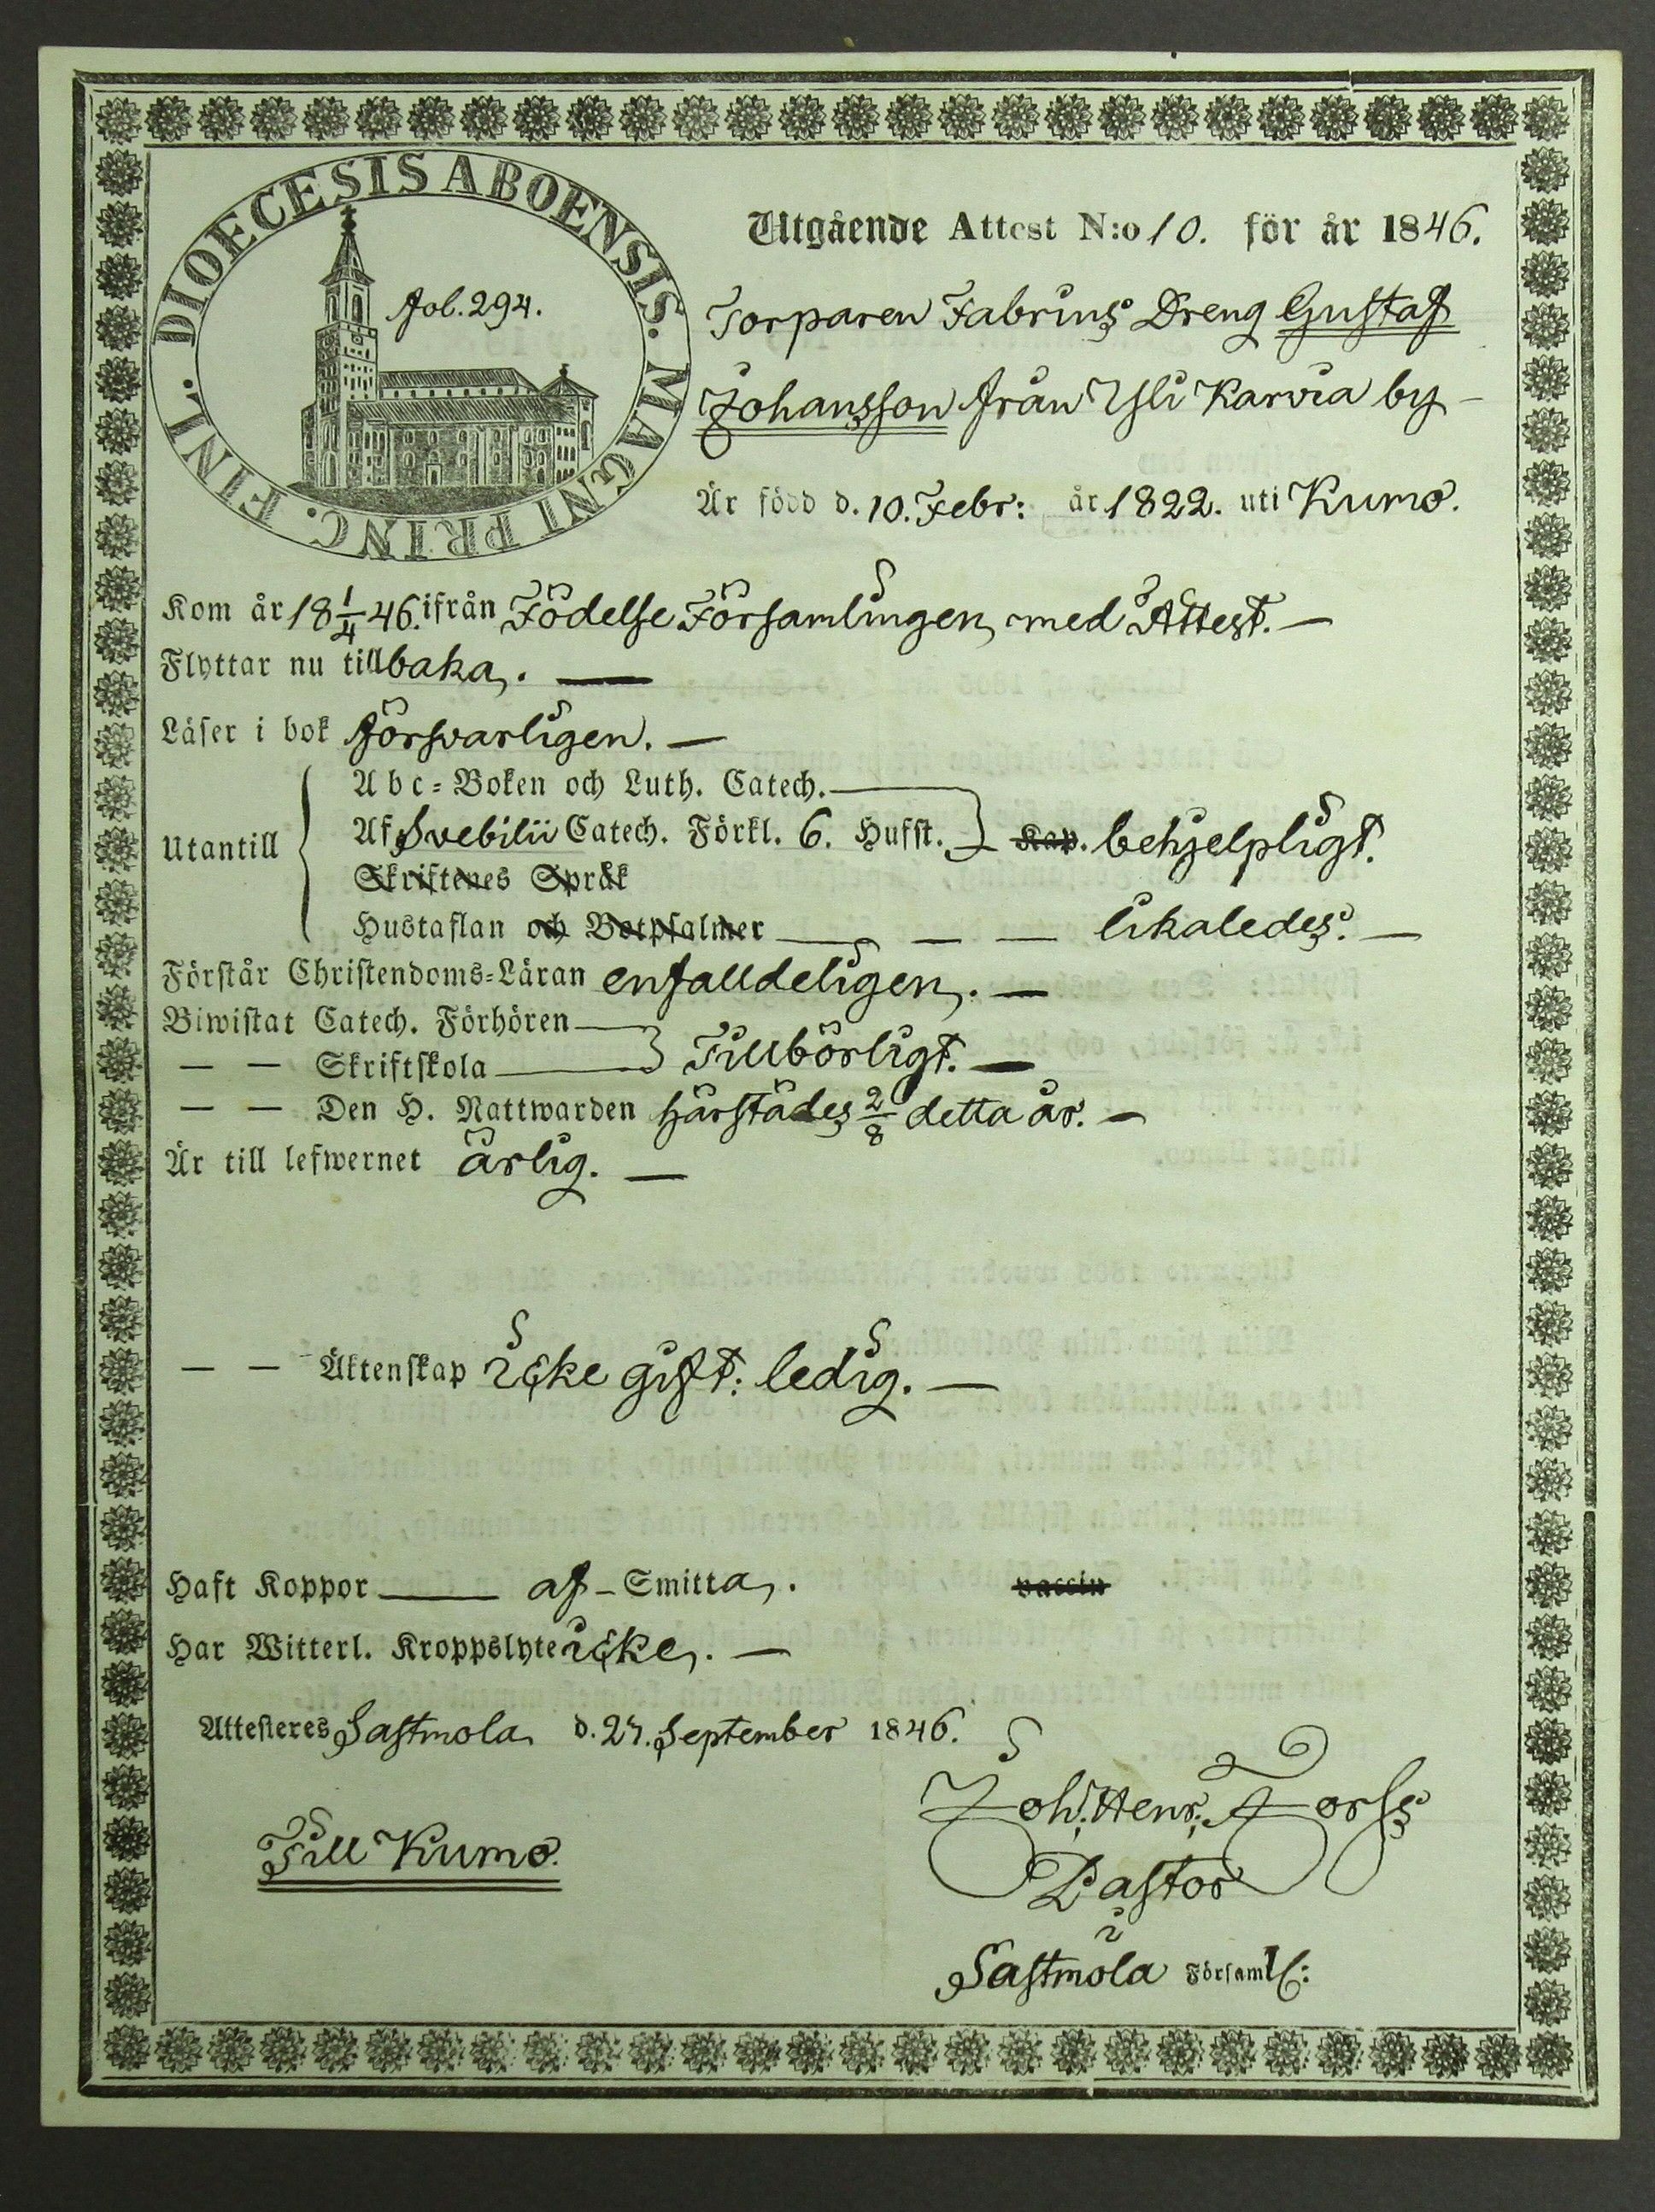 DIOECESIS ABOENSIS. MAGNI PRINC. FINL.
fol. 294.
Utgående Attest N:o 10. för år 1846.
Torparen Fabrins Dreng Gustaf
Johansson från Yli Karvia by –
Är född d. 10. Febr: år 1822. uti Kumo.
Kom år 18 1/4 46. ifrån Födelse Församlingen med Attest. –
Flyttar nu tillbaka. —
Läser i bok försvarligen. –
Utantill
Abc-Boken och Luth. Catech.
Af Svebilii Catech. Förkl. 6. Hufst. Kap. behjelpligt.
Skriftenes Språk
Hustaflan och Botpsalmer — — — likaledes. –
Förstår Christendoms-Läran enfalldeligen. –
Biwistat Catech. Förhören
— — Skriftskola Tillbörligt. –
— — Den H. Nattwarden härstädes 2/8 detta år. –
Är till lefwernet ärlig. –
— — Äktenskap icke gift: ledig. –
Haft Koppor — af – Smitta. vaccin
Har Witterl. Kroppslyte icke. –
Attesteres Sastmola d. 27. September 1846.
Joh. Henr. Forss
Till Kumo.
Pastor
i
Sastmola Församl: